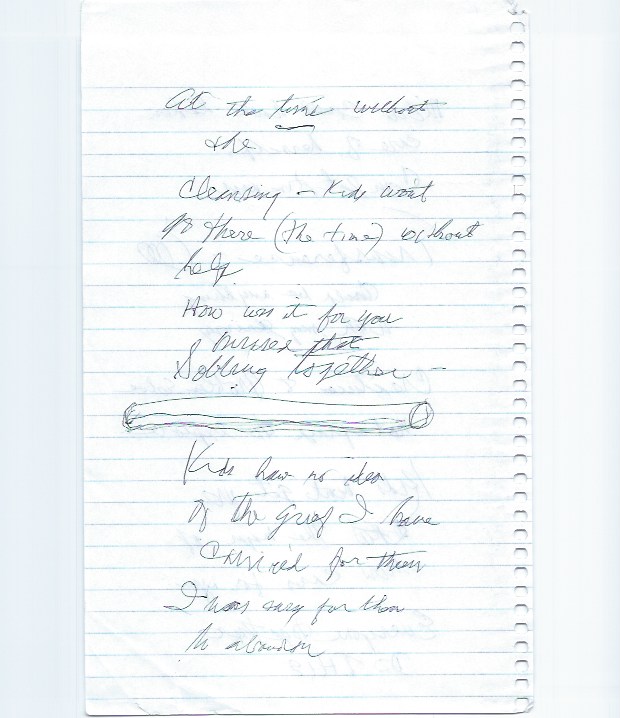 At the time without
the
Cleansing - Kids wont
go there (the time) without
help
How was it for you
that
Sobbing together -
Kids have no idea
of the grief I have
carried for them
I was easy for them
to abandon